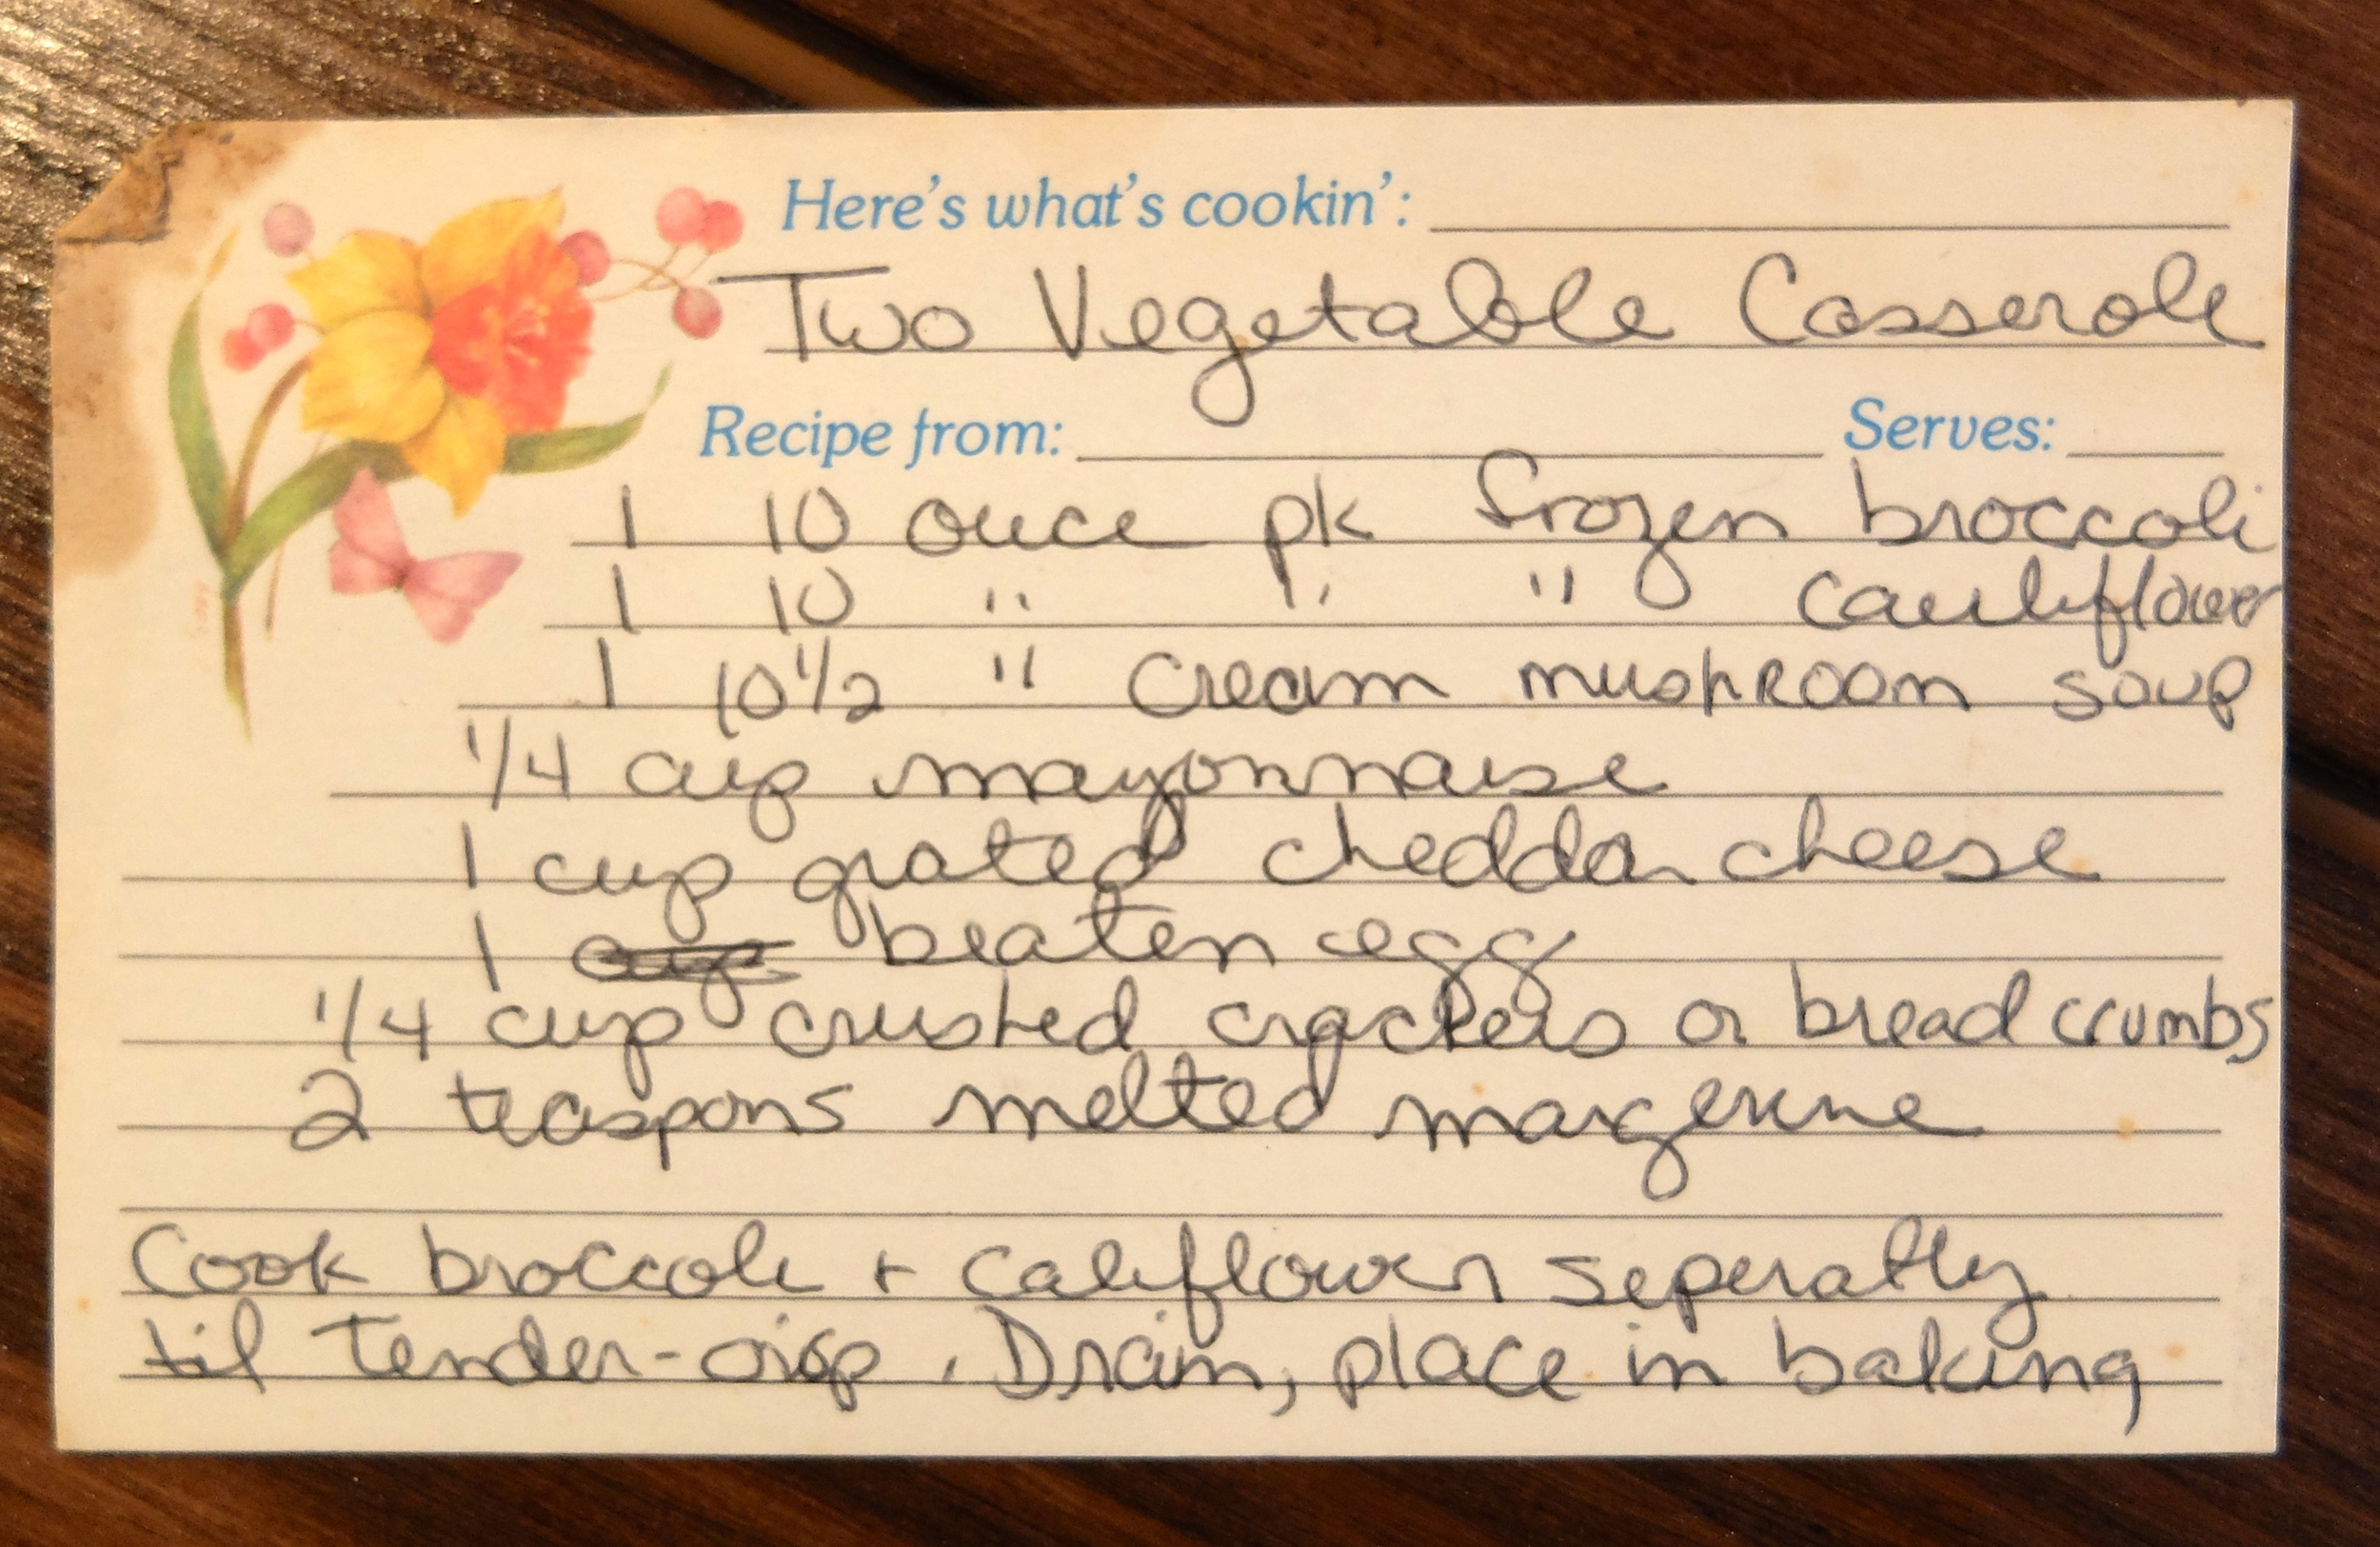 Here's what's cookin':
Two Vegetable Casserole
Recipe from: Serves:
1 10 ouce pk frozen broccoli
1 10 " " " cauliflower
1 10 1/2 " cream mushroom soup
1/4 cup mayonnaise
1 cup grated cheddar cheese
1 beaten egg
1/4 cup crushed crackers or bread crumbs
2 teaspons melted margerine
Cook broccoli + califlower seperatly
til tender-crisp. Drain, place in baking